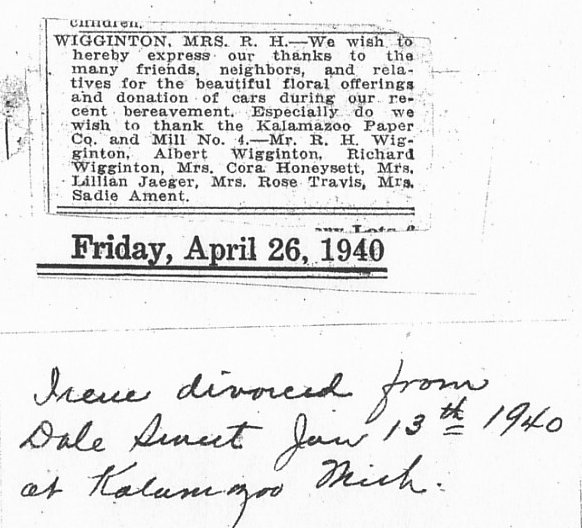 children.
WIGGINTON, MRS. R. H.—We wish to
hereby express our thanks to the
many friends, neighbors, and rela-
tives for the beautiful floral offerings
and donation of cars during our re-
cent bereavement. Especially do we
wish to thank the Kalamazoo Paper
Co. and Mill No. 4.—Mr. R. H. Wig-
ginton, Albert Wigginton, Richard
Wigginton, Mrs. Cora Honeysett, Mrs.
Lillian Jaeger, Mrs. Rose Travis, Mrs.
Sadie Ament.
Lots &
Friday, April 26, 1940
Irene divorced from
Dale Sweet Jan 13th 1940
at Kalamazoo Mich.